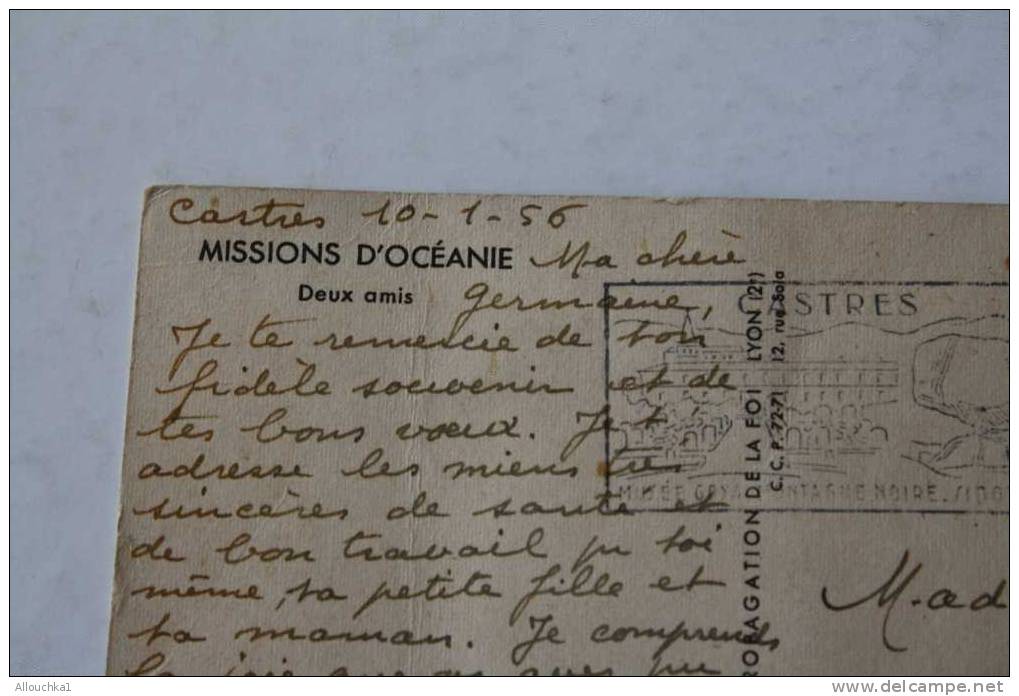 Castres 10-1-56
MISSIONS D'OCÉANIE
Ma chère
Deux amis
Germaine,
Je te remercie de ton
fidèle souvenir et de
tes bons vœux. Je t'
adresse les miens très
sincères de santé et
de bon travail pr toi
même, ta petite fille et
ta maman. Je comprends
la joie que
CASTRES
MUSÉE GOYA MONTAGNE NOIRE. SIDO
PROPAGATION DE LA FOI LYON (2e)
C.C.P. 72-71 12, rue Sala
Mad
Allouchka1
delcampe.net